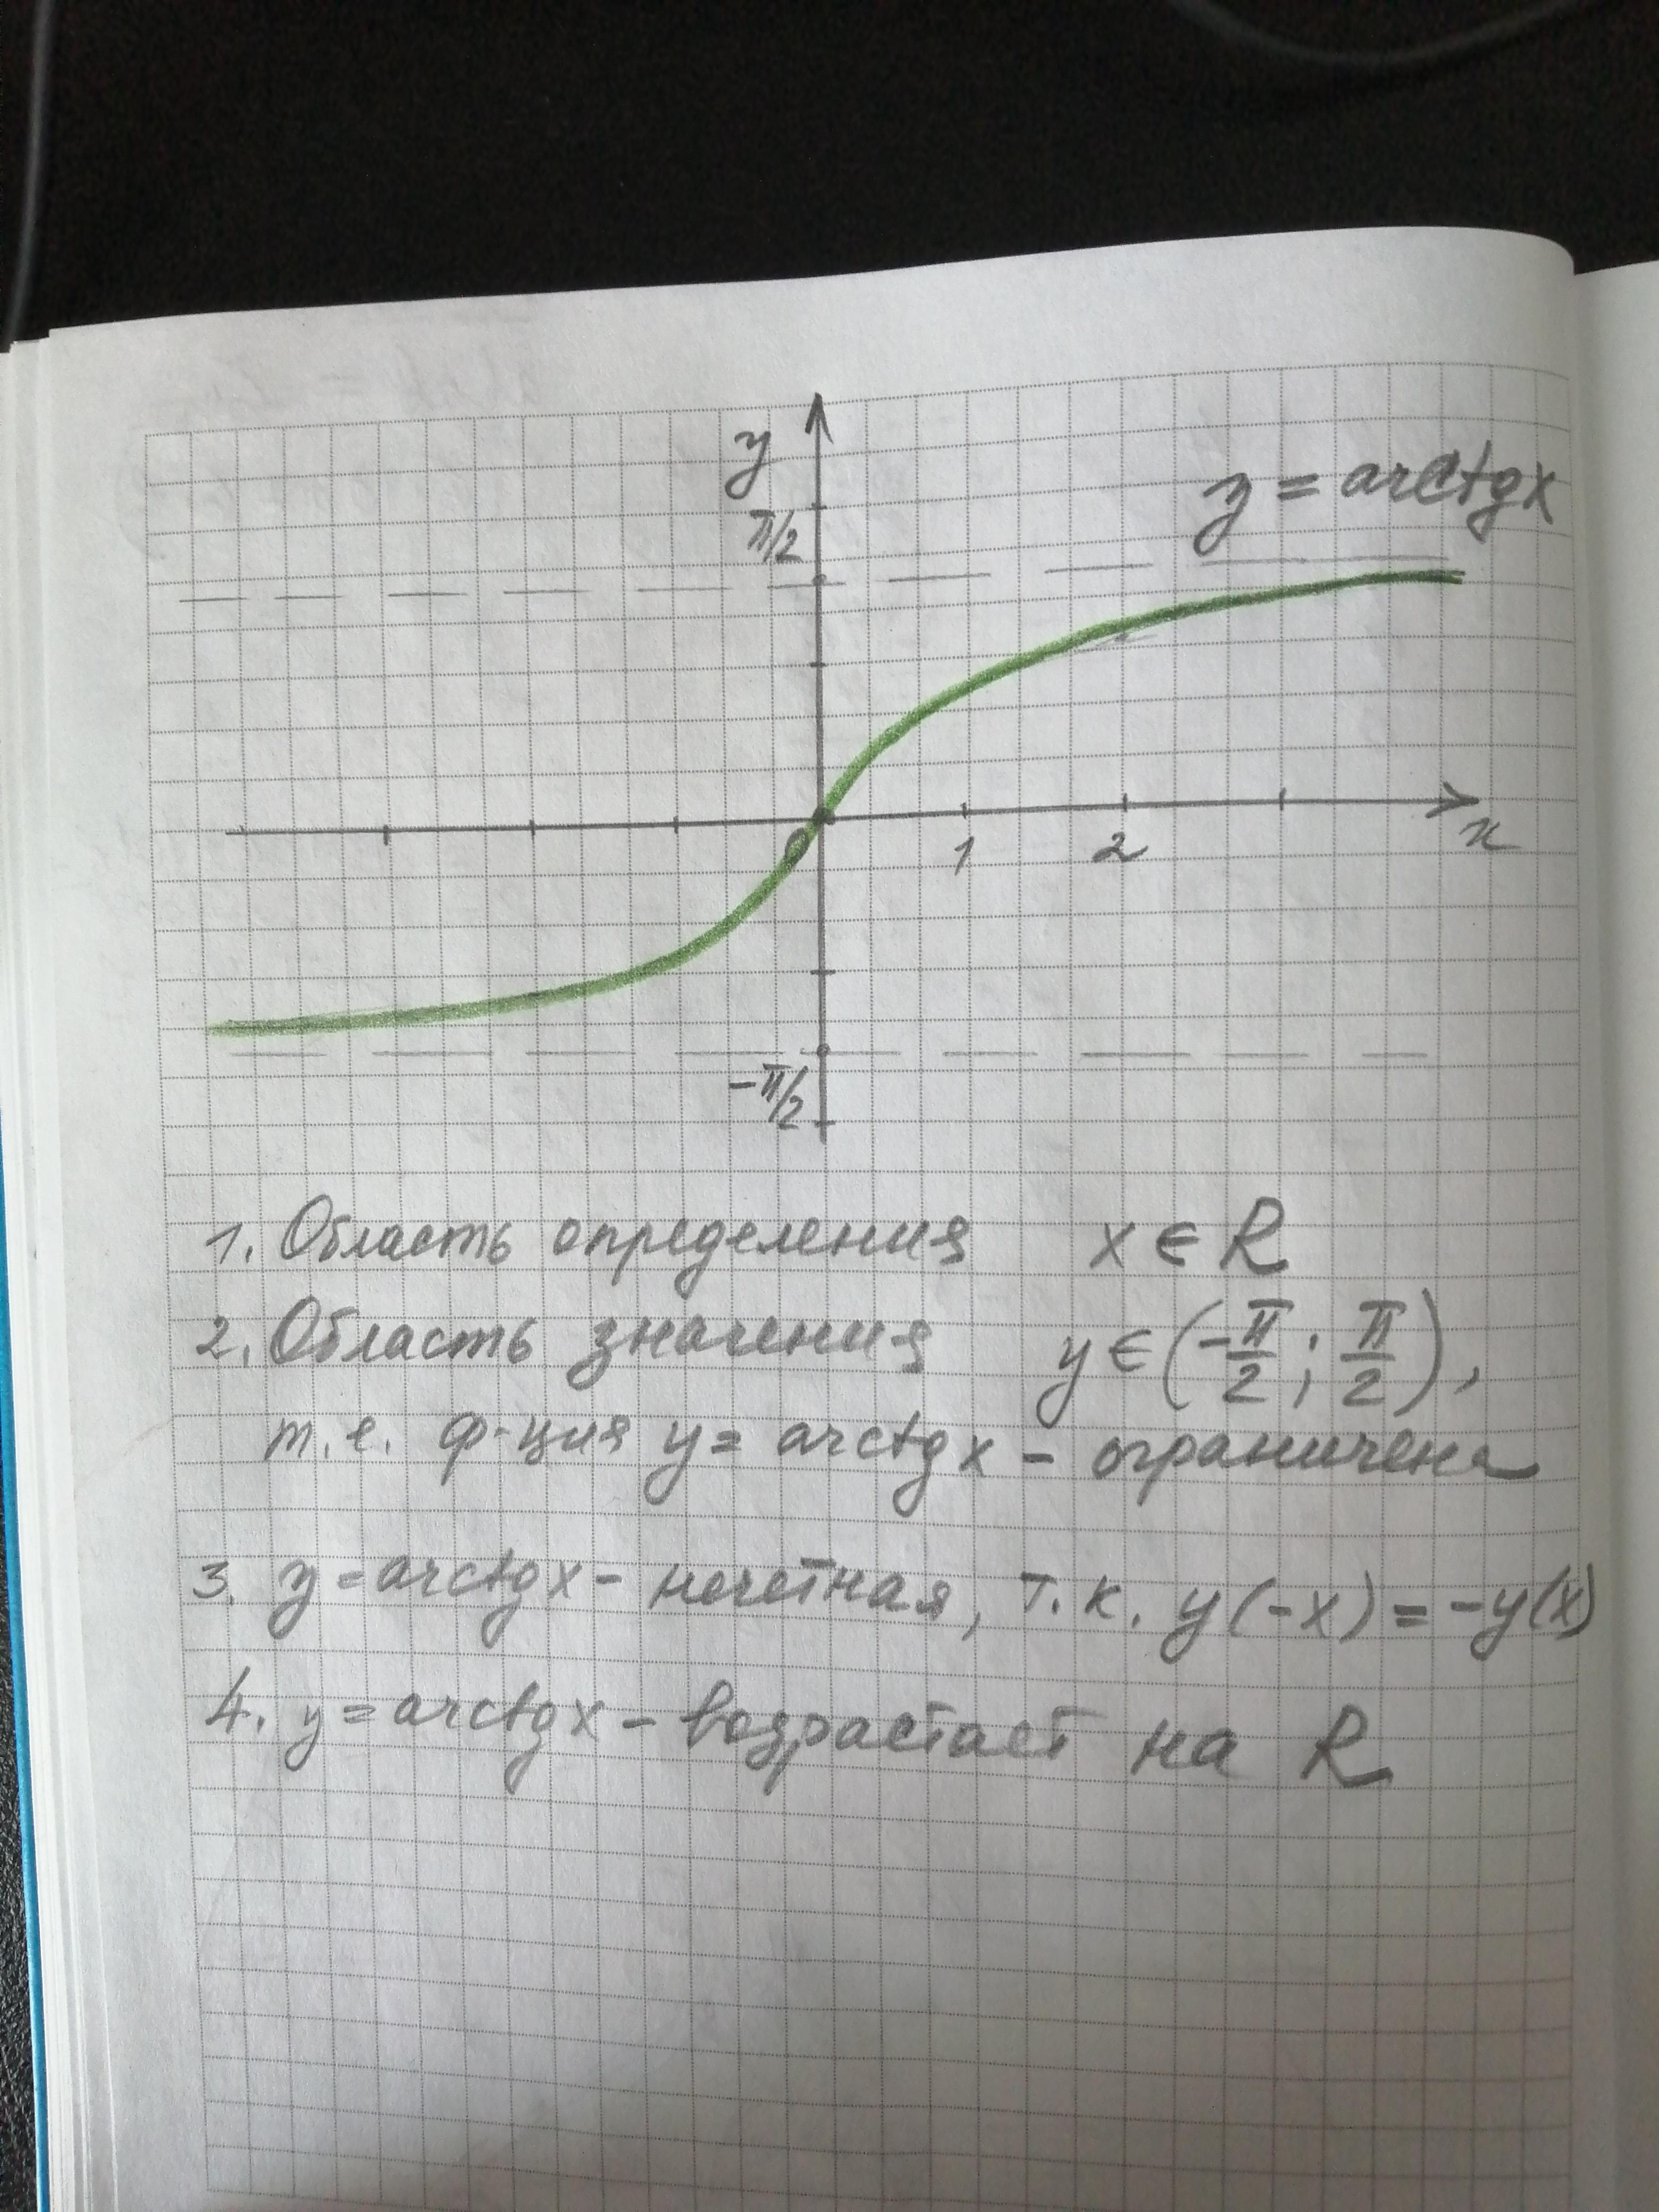 y
y = arctgx
π/2
1 2 x
-π/2
1. Область определения x ∈ R
2. Область значения y ∈ (-π/2 ; π/2),
т.е. ф-ция y = arctg x - ограничена
3. y = arctg x - нечетная, т.к. y(-x) = -y(x)
4. y = arctg x - возрастает на R